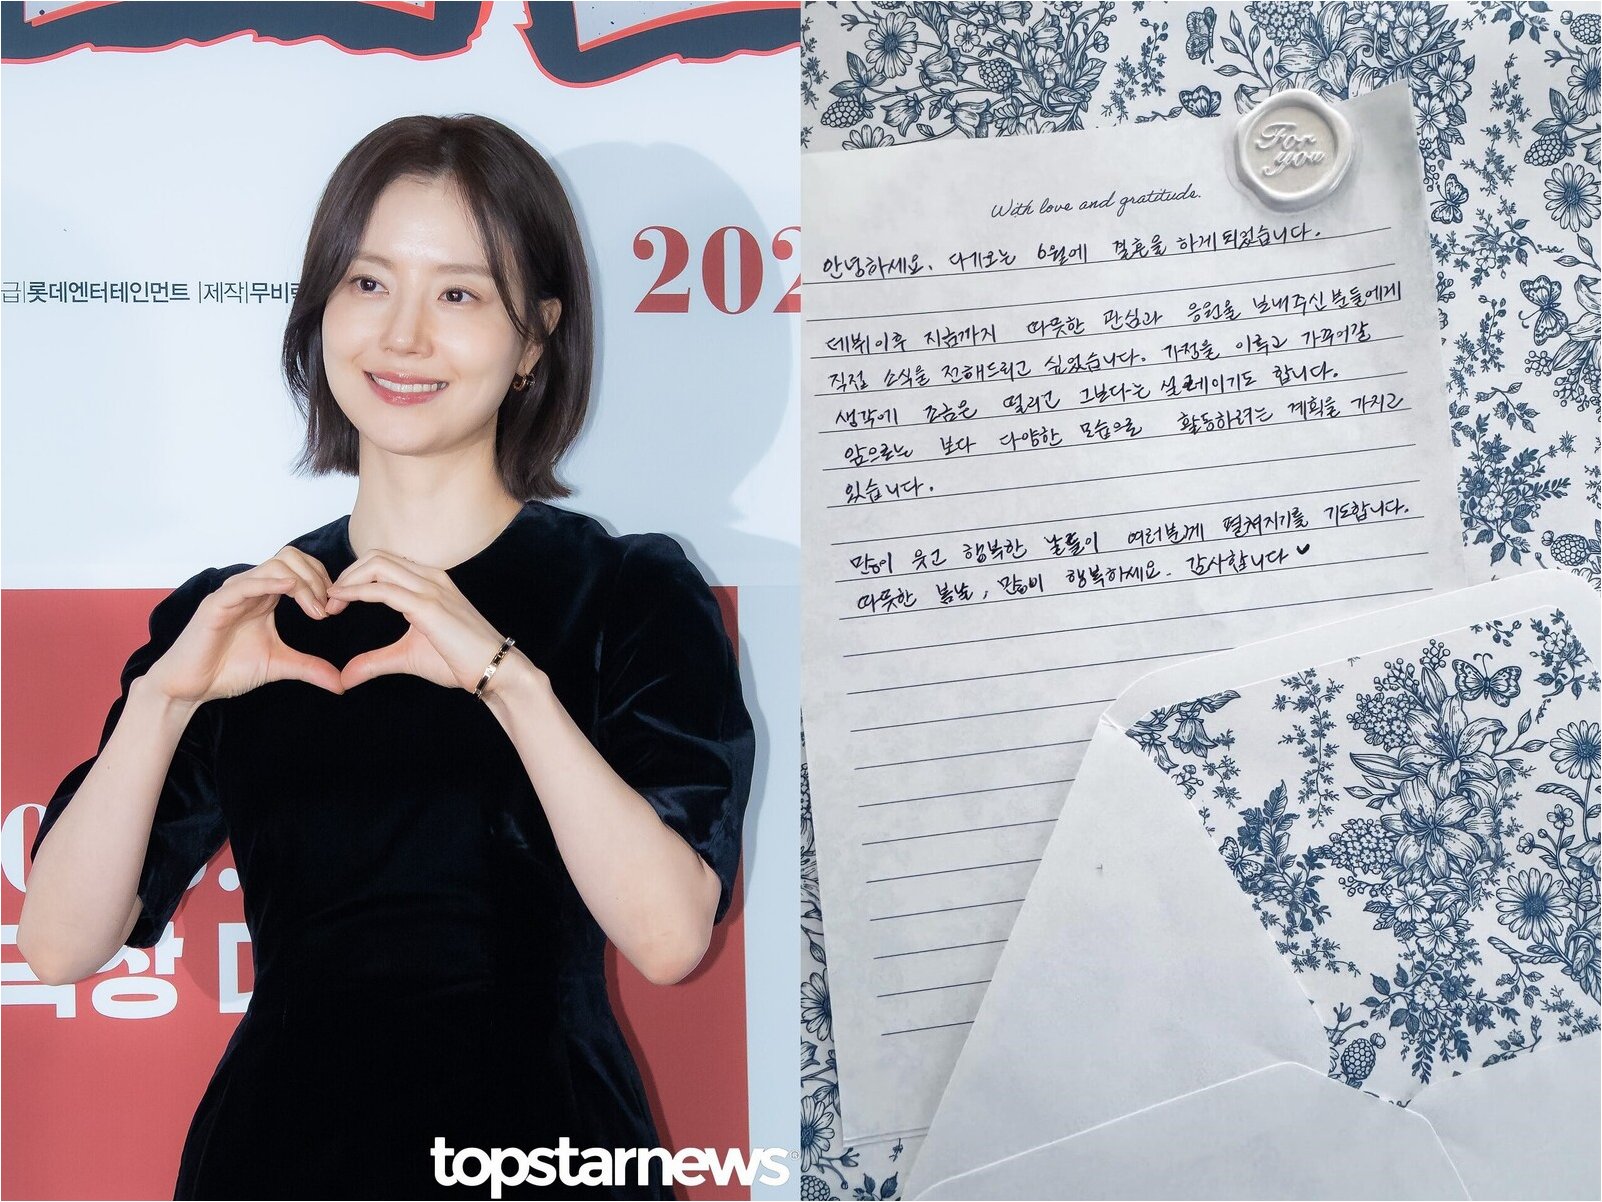 급|롯데엔터테인먼트 |제작|무비락
202
극장 대
topstarnews
For
you
With love and gratitude.
안녕하세요. 다가오는 6월에 결혼을 하게 되었습니다.
데뷔이후 지금까지 따뜻한 관심과 응원을 보내주신 분들에게
직접 소식을 전해드리고 싶었습니다. 가정을 이루고 가꾸어갈
생각에 조금은 떨리고 그보다는 설레이기도 합니다.
앞으로는 보다 다양한 모습으로 활동하려는 계획을 가지고
있습니다.
많이 웃고 행복한 날들이 여러분께 펼쳐지기를 기도합니다.
따뜻한 봄날, 많이 행복하세요. 감사합니다